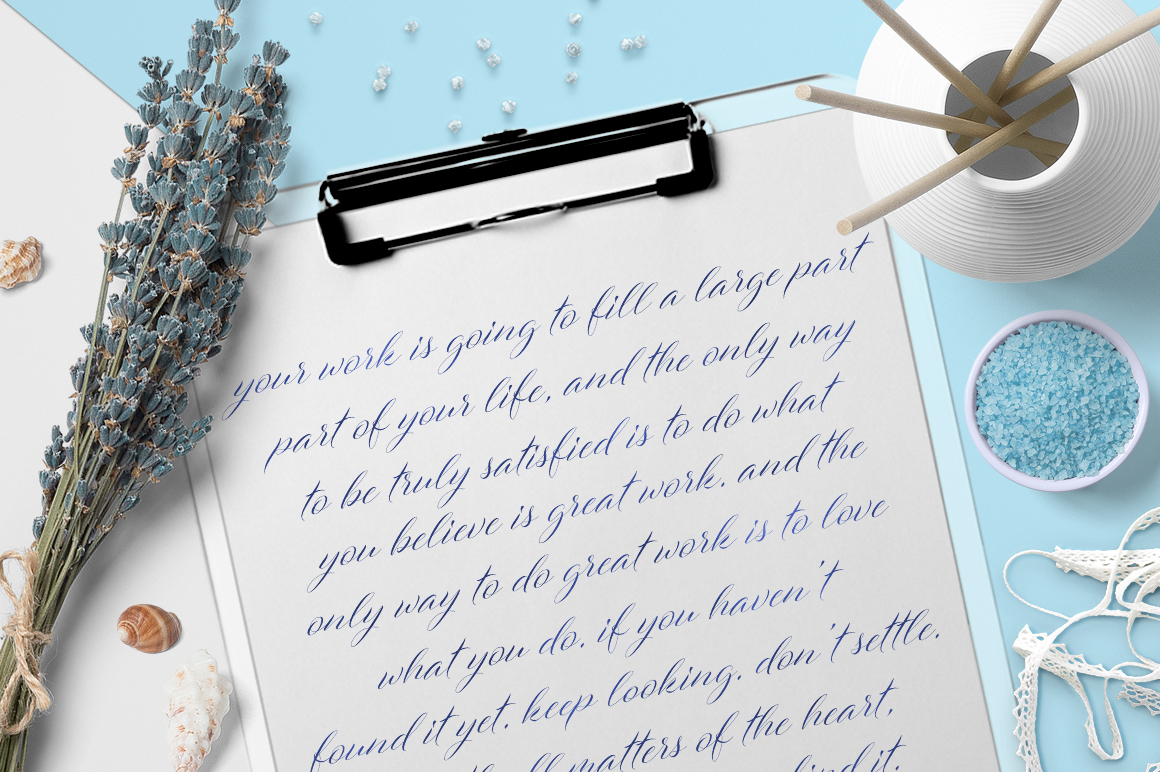 your work is going to fill a large part
part of your life, and the only way
to be truly satisfied is to do what
you believe is great work. and the
only way to do great work is to love
what you do. if you haven't
found it yet. keep looking. don't settle.
all matters of the heart,
find it.